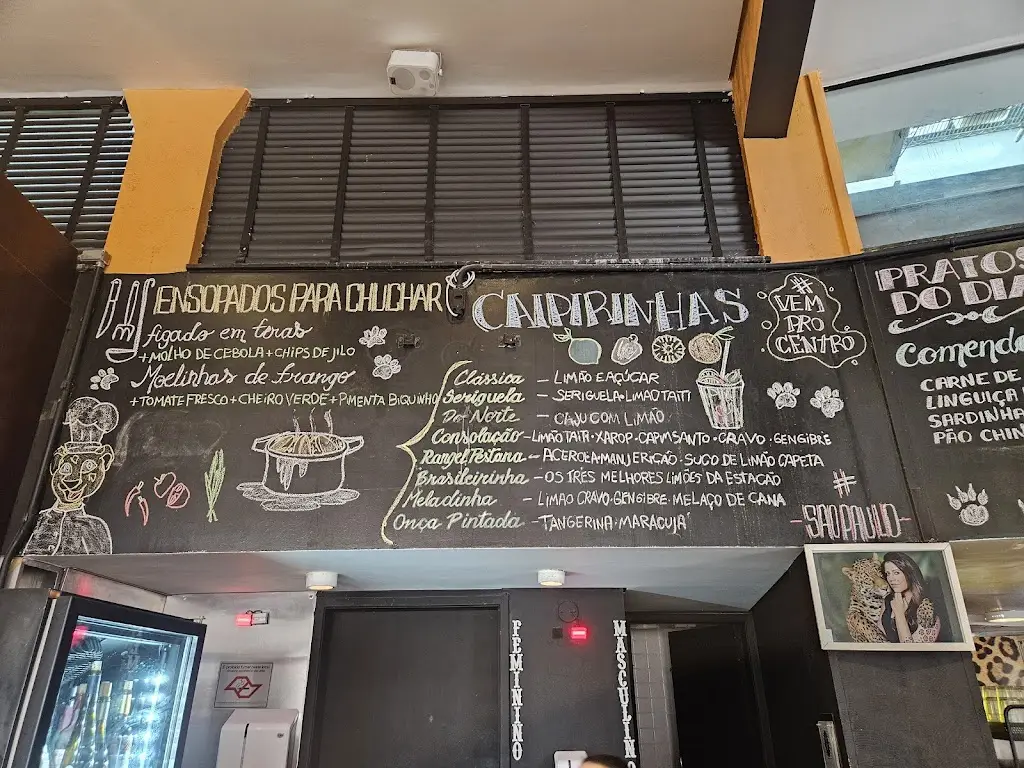 ENSOPADOS PARA CHUCHAR
figado em tiras
+ MOLHO DE CEBOLA + CHIPS DE JILO
Moelinhas de frango
+ TOMATE FRESCO + CHEIRO VERDE + PIMENTA BIQUINHO
CAIPIRINHAS
Clássica - LIMÃO E AÇÚCAR
Seriguela - SERIGUELA + LIMÃO TAITI
Do Norte - CAJU COM LIMÃO
Consolação - LIMÃO TAITI · XAROP · CAPIM SANTO · CRAVO · GENGIBRE
Rangel Pestana - ACEROLA · MANJERICÃO · SUCO DE LIMÃO CAPETA
Brasileirinha - OS TRÊS MELHORES LIMÕES DA ESTAÇÃO
Meladinha - LIMÃO CRAVO · GENGIBRE · MELAÇO DE CANA
Onça Pintada - TANGERINA · MARACUJÁ
#
VEM
PRO
CENTRO
#
SAO PAULO
PRATOS
DO DIA
Comend
CARNE DE
LINGUIÇA
SARDINHA
PÃO CHIN
FEMININO
MASCULINO